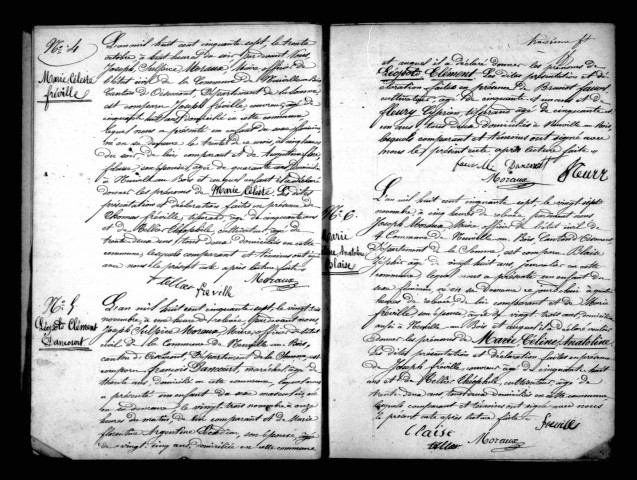 N° 4
Marie Céleste
fréville
L'an mil huit cent cinquante sept, le trente
octobre, à sept heures du soir, par devant Nous
Joseph Sulpice Moraux, Maire, officier de
l'état civil de la Commune de Neuville au Bois
Canton d'Oisemont, Département de la Somme
est comparu Joseph fréville, ouvrier, âgé de
cinquante huit domicilié en cette commune
lequel nous a présenté un enfant du sexe féminin
né en sa demeure le trente de ce mois, à cinq heures
du soir, de lui comparant et de
son épouse, âgée de quarante ans domiciliée
à Neuville au Bois et auquel enfant il a déclaré
donner les prénoms de Marie Céleste. Les dites
présentation et déclaration faites en présence de
Thomas fréville, âgé de cinquante ans
et de Tellier Théophile, cultivateur, âgé de
trente deux ans tous deux domiciliés en cette
commune, lesquels comparant et témoins ont signé
avec nous le présent acte après lecture faite
Tellier fréville Moraux
N° 5
Clément
Dancourt
L'an mil huit cent cinquante sept, le vingt trois
novembre, à une heure de relevée, par devant nous
Joseph Sulpice Moraux, Maire, officier de l'état
civil de la Commune de Neuville au Bois
canton d'Oisemont, Département de la Somme, est
comparu françois Dancourt, maréchal, âgé de
trente ans, domicilié en cette commune, lequel nous
a présenté un enfant du sexe masculin né
en sa demeure, le vingt trois novembre à onze
heures du matin, de lui comparant et de Marie
florentine Argentine son épouse, âgée
de vingt cinq ans domiciliée en cette commune
troisième ft
et auquel il a déclaré donner les prénoms de
Clément. Les dites présentation et dé-
claration faites en présence de faux
cultivateur, âgé de cinquante et un ans et de
fleury Cyprien, âgé de cinquante et
un ans, tous deux domiciliés à Neuville au Bois,
lesquels comparant et témoins ont signé avec
nous le présent acte après lecture faite
faux Dancourt fleury
Moraux
N° 6
Marie
Céline Anatoline
Blaise
L'an mil huit cent cinquante sept, le vingt sept
novembre, à cinq heures de relevée, par devant nous
Joseph Moraux Maire officier de l'état civil de
la Commune de Neuville au Bois Canton d'Oisemont
Département de la Somme, est comparu Blaise
âgé de vingt huit ans, en cette
commune lequel nous a présenté un enfant du
sexe féminin, né en sa demeure ce jourd'hui à quatre
heures de relevée de lui comparant et de Marie
fréville, son épouse, âgée de vingt trois ans domiciliée
aussi à Neuville au Bois et auquel il a déclaré vouloir
donner les prénoms de Marie Céline Anatoline
Les dites présentation et déclaration faites en présence
de Joseph fréville, ouvrier âgé de cinquante huit
ans et de Tellier Théophile, cultivateur, âgé de
trente deux ans tous deux domiciliés en cette commune
lesquels comparant et témoins ont signé avec nous
le présent acte après lecture faite
Blaise fréville
Tellier Moraux